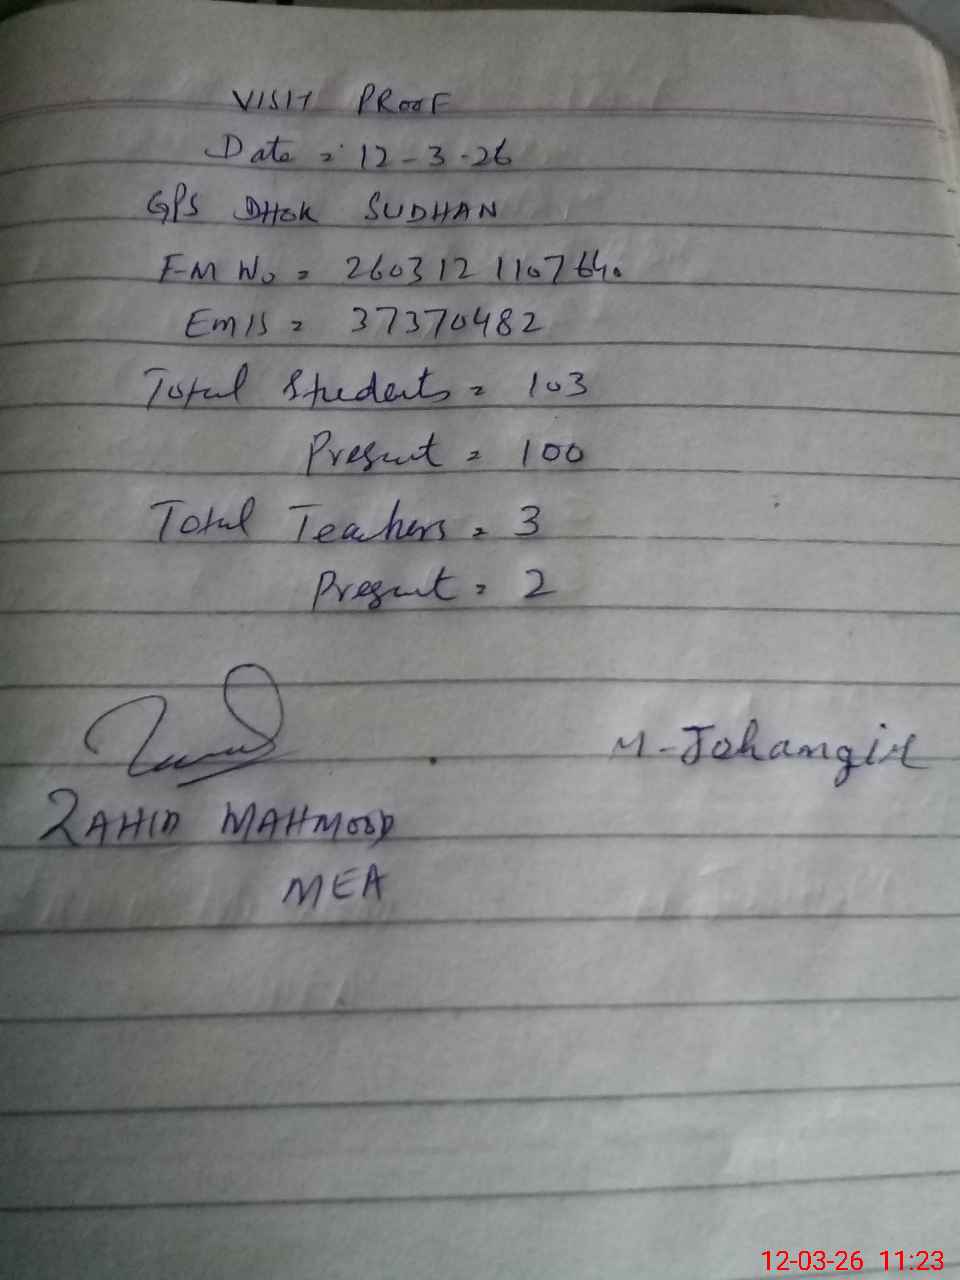 VISIT PROOF
Date = 12-3-26
GPS DHOK SUDHAN
F-M No = 260312110764.
EMIS = 37370482
Total Students = 103
Present = 100
Total Teachers = 3
Present = 2
M-Jehangir
ZAHID MAHMOOD
MEA
12-03-26 11:23